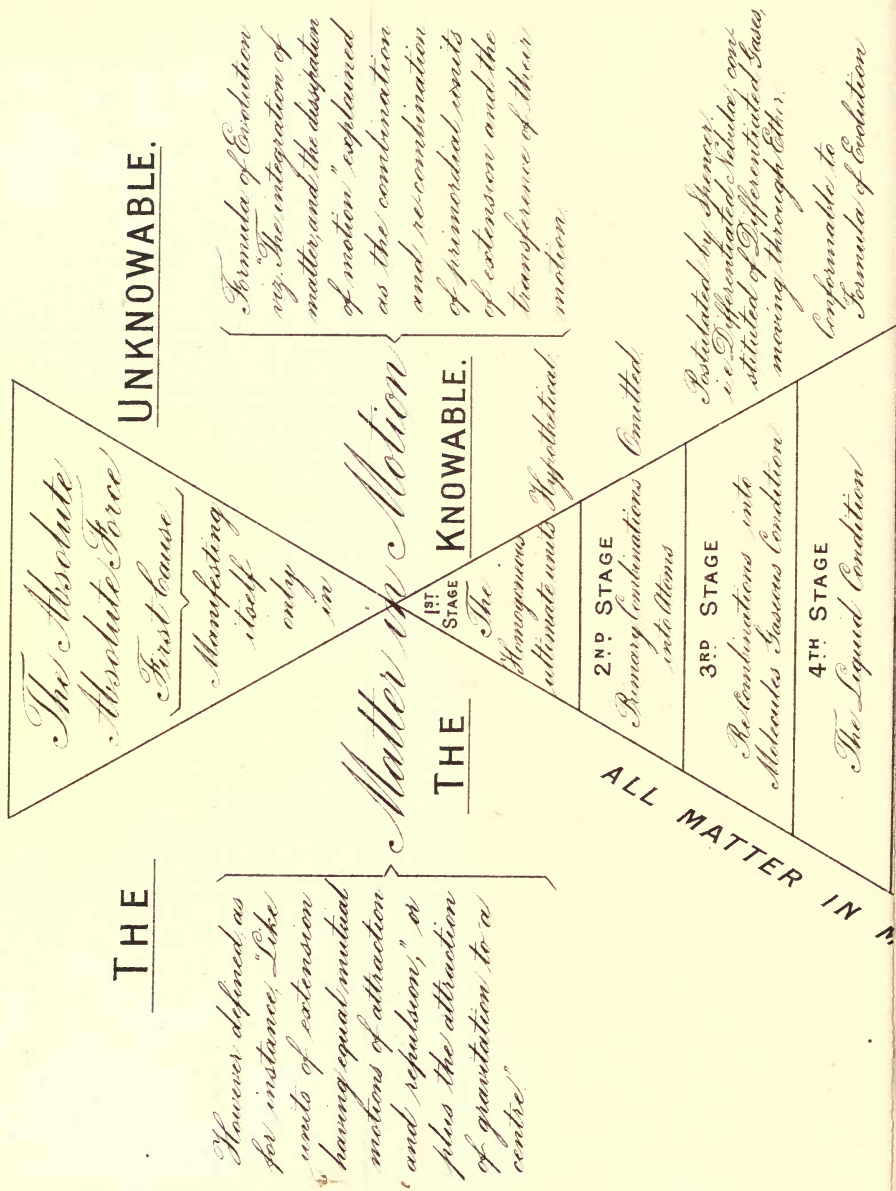 THE UNKNOWABLE.
The Absolute
Absolute Force
First Cause
Manifesting
itself
only
in
However defined, as
for instance, "Like
units of extension
having equal mutual
motions of attraction
and repulsion," or
plus the attraction
of gravitation to a
centre"
Matter in Motion
Formula of Evolution
viz. "The integration of
matter, and the dissipation
of motion" explained
as the combination
and re-combination
of primordial units
of extension and the
transference of their
motion.
THE KNOWABLE.
1ST
STAGE
The
Homogenous
ultimate units Hypothetical.
2ND STAGE
Primary Combinations Omitted.
into Atoms
3RD STAGE
Re Combinations into
Molecules Gaseous Condition
Postulated by Spencer.
i.e. Differentiated Nebulae, con-
stituted of Differentiated Gases,
moving through Ether.
4TH STAGE
The Liquid Condition
Conformable to
Formula of Evolution
ALL MATTER IN M